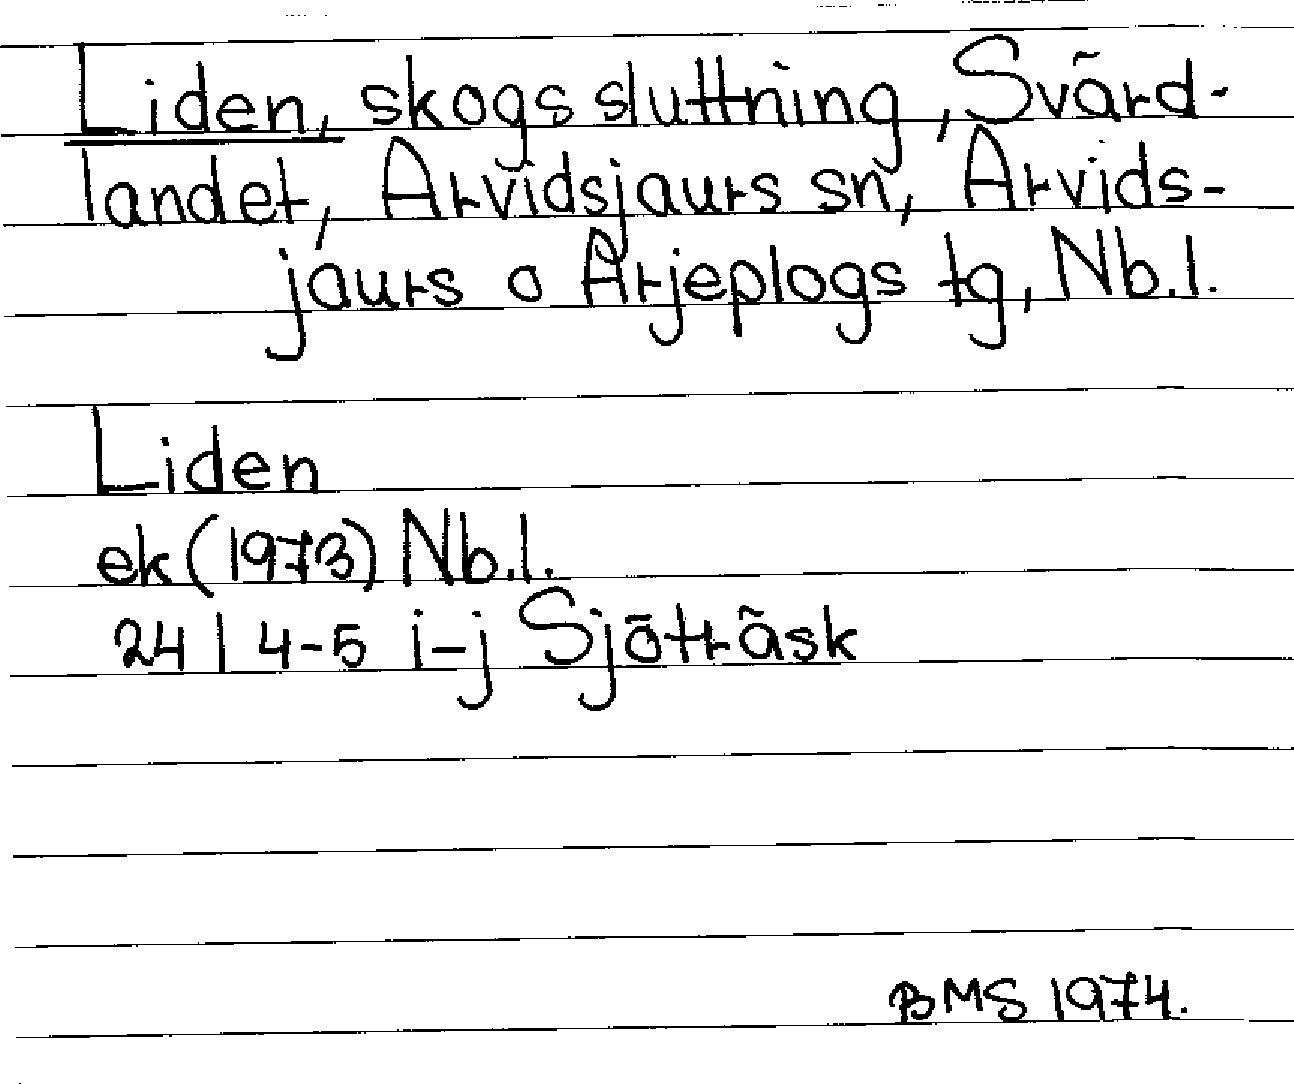 Liden, skogssluttning, Svärd-
landet, Arvidsjaurs sn, Arvids-
jaurs o Arjeplogs tg, Nb.l.
Liden
ek (1973) Nb.l.
24 I 4-5 i-j Sjöträsk
BMS 1974.